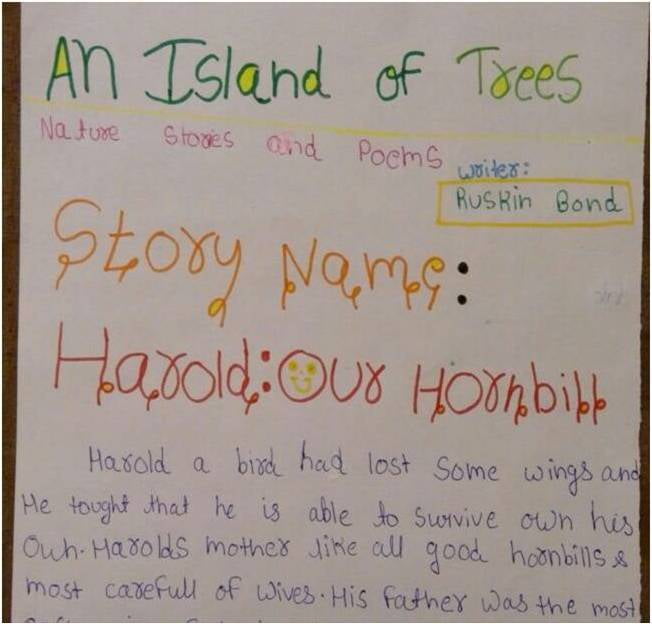 An Island of Trees
Nature Stories and Poems
writer:
Ruskin Bond
Story Name:
Harold: Our Hornbill
Harold a bird had lost some wings and
He tought that he is able to survive own his
Own. Harolds mother like all good hornbills &
most carefull of wives. His father was the most